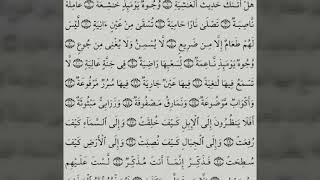 هَلْ أَتَىٰكَ حَدِيثُ ٱلْغَـٰشِيَةِ ۝ وُجُوهٌ يَوْمَئِذٍ خَـٰشِعَةٌ ۝ عَامِلَةٌ
نَّاصِبَةٌ ۝ تَصْلَىٰ نَارًا حَامِيَةً ۝ تُسْقَىٰ مِنْ عَيْنٍ ءَانِيَةٍ ۝ لَّيْسَ
لَهُمْ طَعَامٌ إِلَّا مِن ضَرِيعٍ ۝ لَّا يُسْمِنُ وَلَا يُغْنِى مِن جُوعٍ ۝
وُجُوهٌ يَوْمَئِذٍ نَّاعِمَةٌ ۝ لِّسَعْيِهَا رَاضِيَةٌ ۝ فِى جَنَّةٍ عَالِيَةٍ ۝ لَّا
تَسْمَعُ فِيهَا لَـٰغِيَةً ۝ فِيهَا عَيْنٌ جَارِيَةٌ ۝ فِيهَا سُرُرٌ مَّرْفُوعَةٌ ۝
وَأَكْوَابٌ مَّوْضُوعَةٌ ۝ وَنَمَارِقُ مَصْفُوفَةٌ ۝ وَزَرَابِىُّ مَبْثُوثَةٌ ۝
أَفَلَا يَنظُرُونَ إِلَى ٱلْإِبِلِ كَيْفَ خُلِقَتْ ۝ وَإِلَى ٱلسَّمَآءِ كَيْفَ
رُفِعَتْ ۝ وَإِلَى ٱلْجِبَالِ كَيْفَ نُصِبَتْ ۝ وَإِلَى ٱلْأَرْضِ كَيْفَ
سُطِحَتْ ۝ فَذَكِّرْ إِنَّمَآ أَنتَ مُذَكِّرٌ ۝ لَّسْتَ عَلَيْهِم